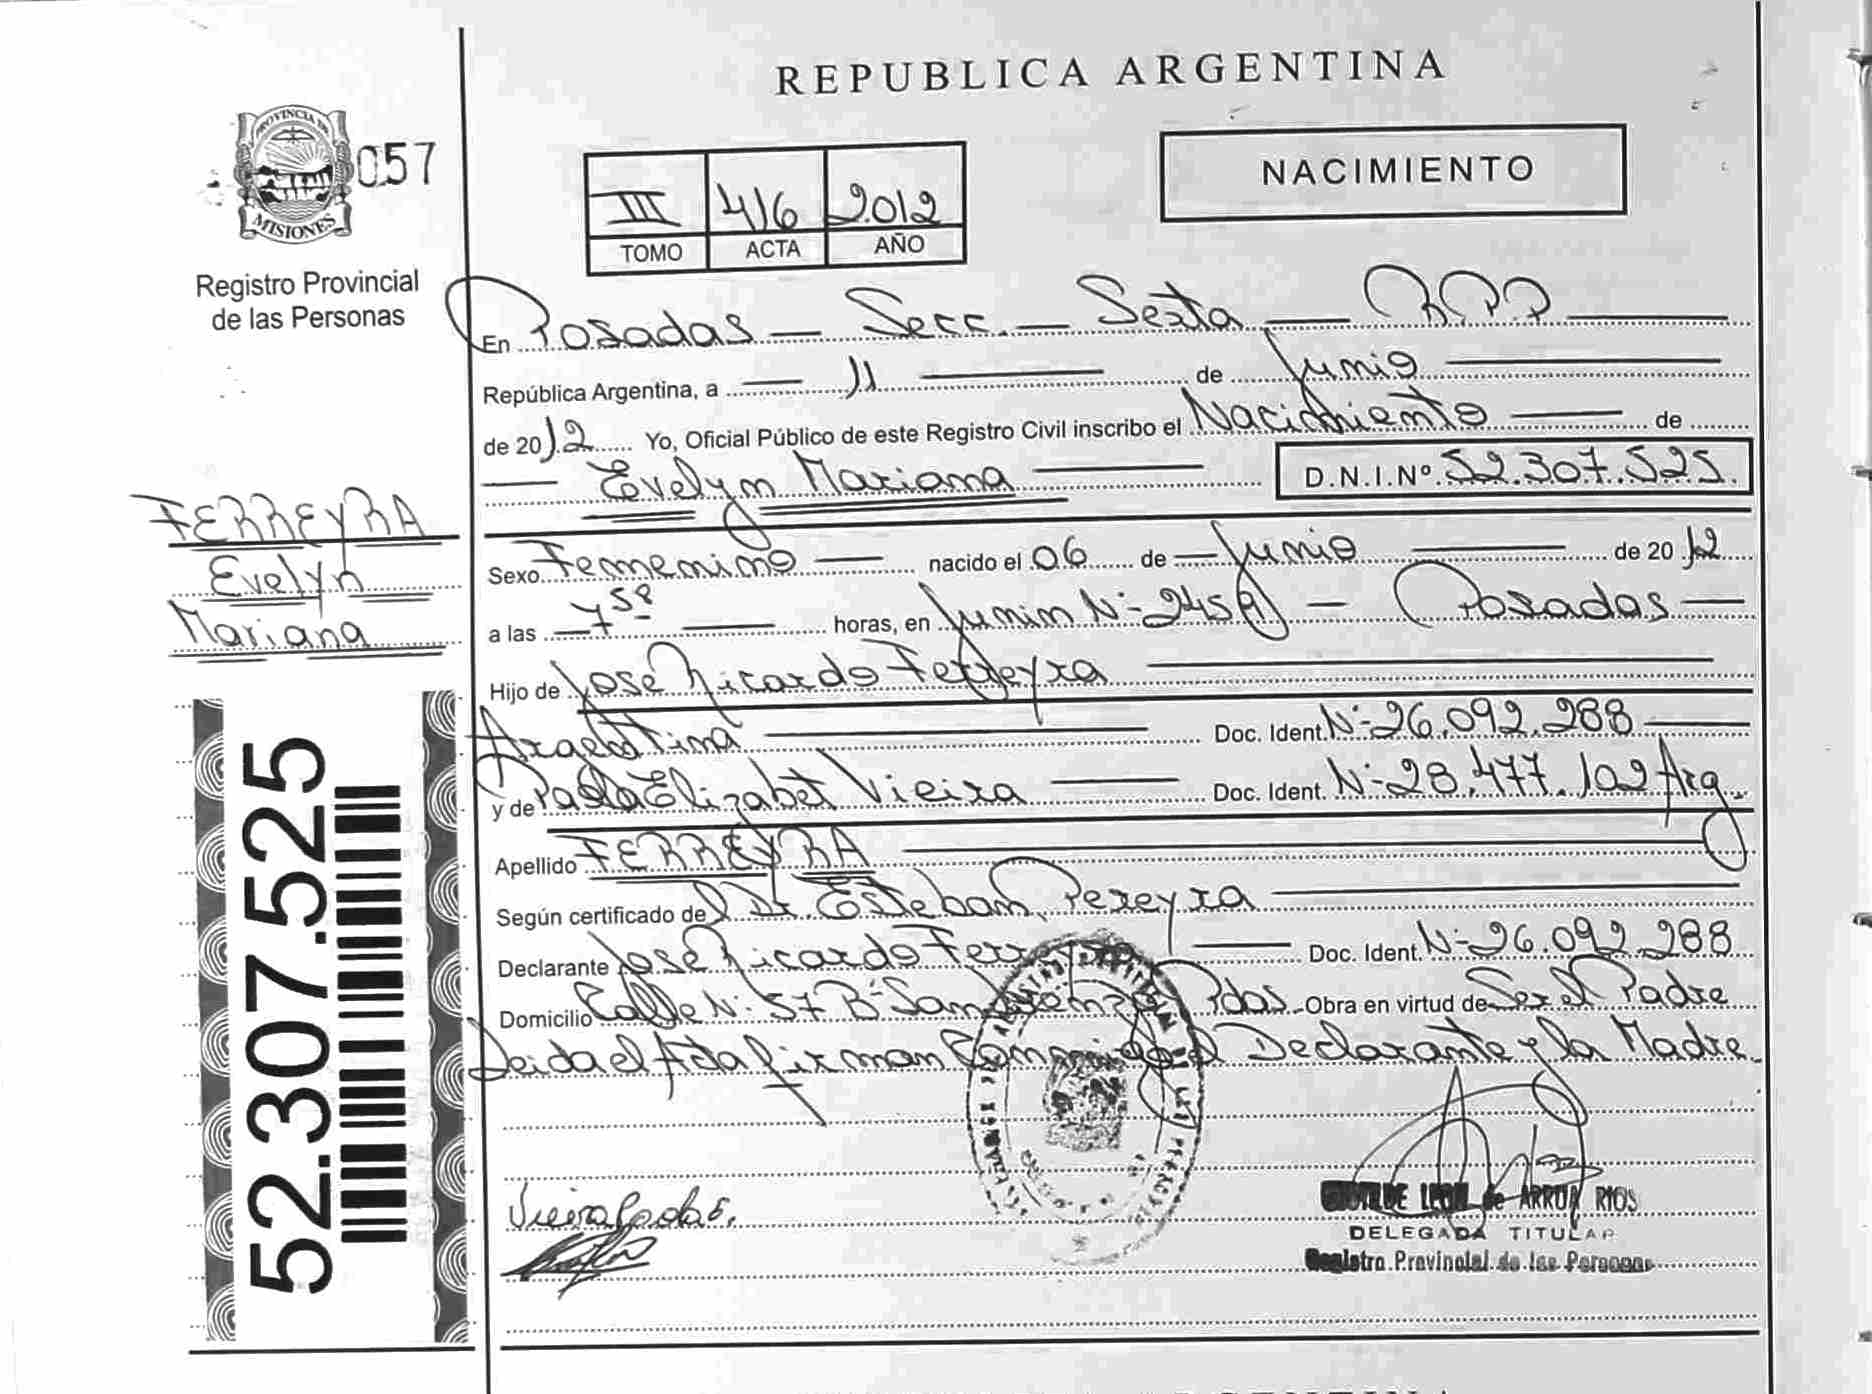 REPUBLICA ARGENTINA
PROVINCIA DE
MISIONES
057
Registro Provincial
de las Personas
III 416 2012
TOMO ACTA AÑO
NACIMIENTO
En Posadas — Secc. — Sexta — R.P.P
República Argentina, a — 11 — de Junio
de 2012 Yo, Oficial Público de este Registro Civil inscribo el Nacimiento — de
— Evelyn Mariana — D.N.I.Nº 52.307.525.
FERREYRA
Evelyn
Mariana
Sexo Femenino — nacido el 06 de — Junio — de 2012
a las — 7 58 — horas, en Junin Nº 2459 — Posadas —
Hijo de José Ricardo Ferreyra
Argentina — Doc. Ident. Nº 26.092.288 —
y de Paola Elizabet Vieira — Doc. Ident. Nº 28.477.102 Arg.
Apellido FERREYRA
Según certificado del Dr. Esteban Pereyra
Declarante José Ricardo Ferreyra — Doc. Ident. Nº 26.092.288
Domicilio Calle Nº 57 Bº San Pdas. Obra en virtud de Ser el Padre
Leida el Acta firman Conmigo el Declarante y la Madre.
52.307.525
Vieira Paola E.
LEON de ARRUA RIOS
DELEGADA TITULAR
Registro Provincial de las Personas